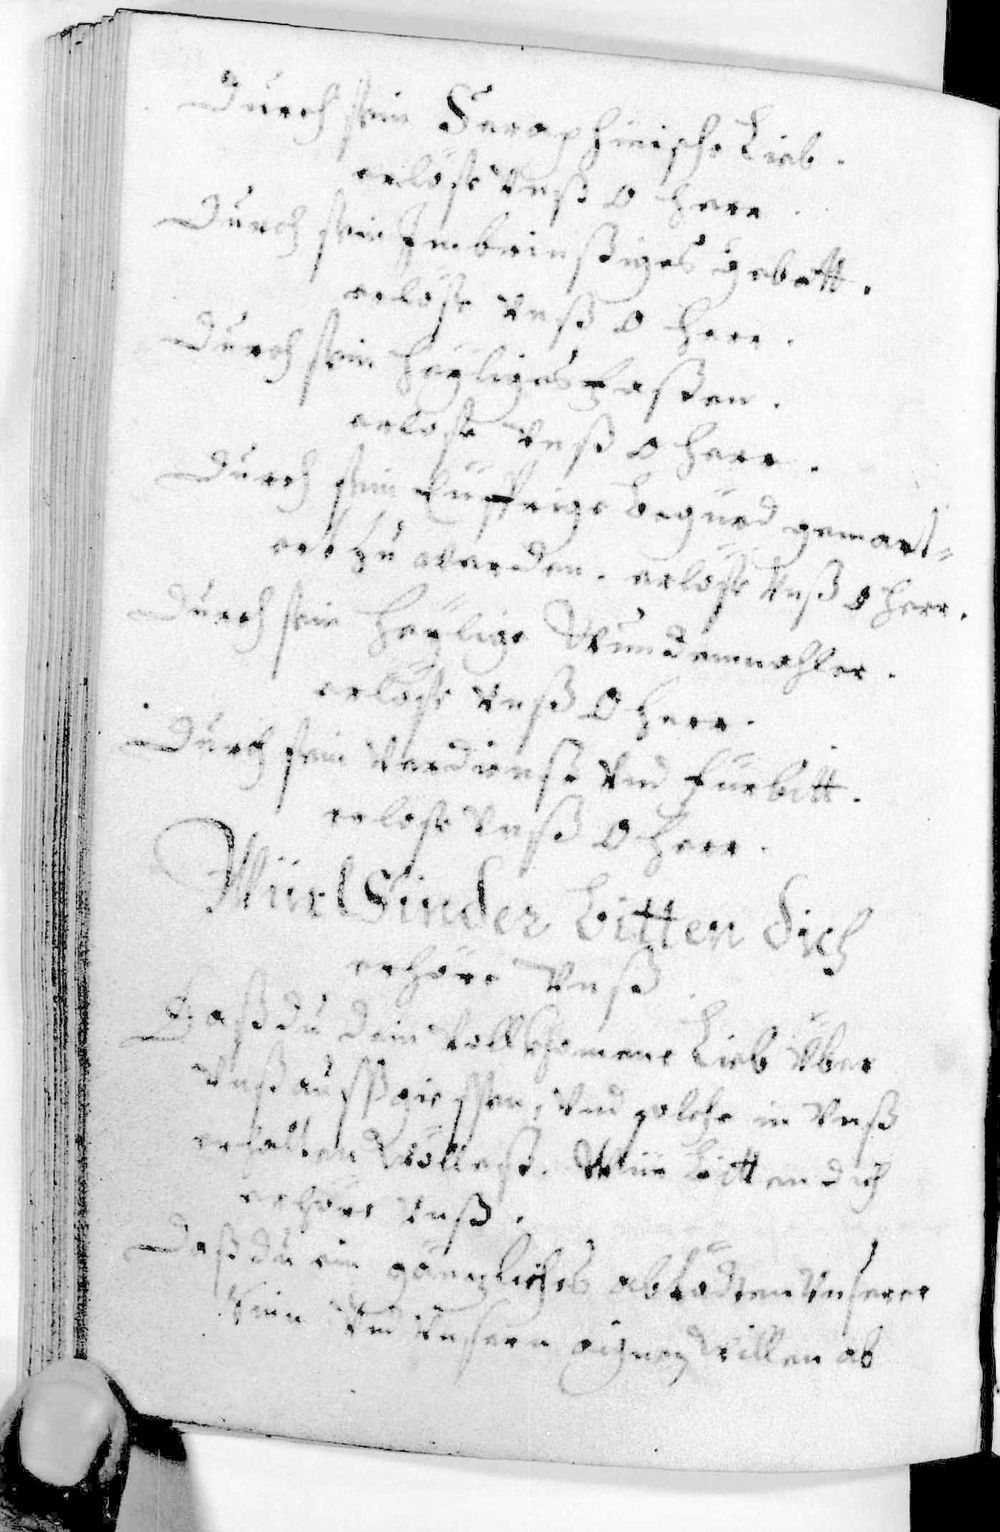 Durch sein Seraphinische Lieb.
erlöse Vnß O herr.
Durch sein Inbrinstiges gebett.
erlöse Vnß O herr.
Durch sein heyliges Fasten.
erlöse Vnß O herr.
Durch sein Eyffrige begürd gemart-
ert zu werden. erlöse Vnß O herr.
Durch sein heylige Wundenmahler.
erlöse Vnß O herr.
Durch sein Verdienst Vnd fürbitt.
erlöse Vnß O herr.
Wür Sünder bitten dich
erhöre Vnß.
Daß du dein Vollkhomene Lieb Vber
Vnß außgiessen, Vnd solche in Vnß
erhalten wöllest. Wür bitten dich
erhöre Vnß.
Daß du ein gänzliches abtödten Vnserer
Sinn Vnd Vnsern eignen willen ab